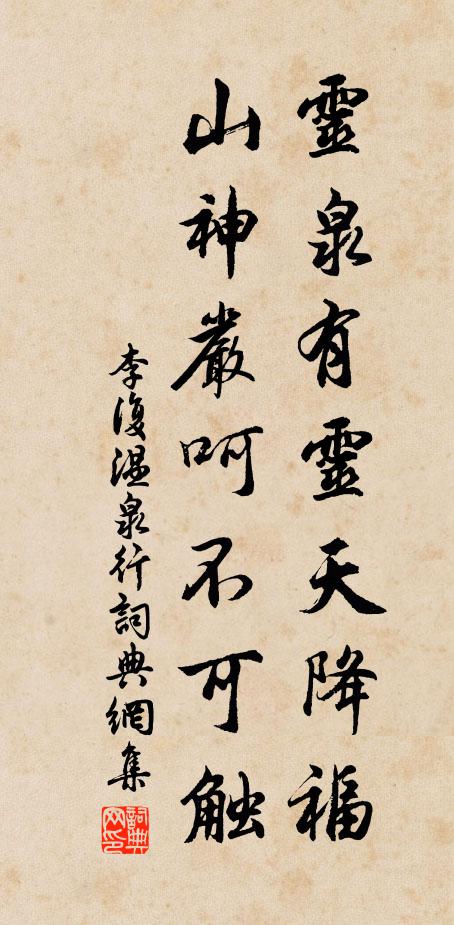 靈泉有靈天降福
山神嚴呵不可触
李復溫泉行詞典網集
詞典網印